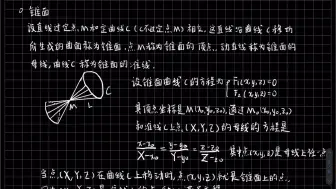 锥面
设直线过定点M和定曲线C(C不过定点M)相交,这直线沿曲线C移动
所生成的曲面称为锥面,点M称为锥面的顶点,动直线称为锥面的
母线,曲线C称为锥面的准线.
设锥面曲线C的方程为 { F₁(x,y,z)=0
F₂(x,y,z)=0
其顶点坐标是M(x₀,y₀,z₀),通过M₀(x₀,y₀,z₀)
和准线C上点(X,Y,Z)的母线的方程是
M L C
(x-x₀)/(X-x₀) = (y-y₀)/(Y-y₀) = (z-z₀)/(Z-z₀) 其中点(x,y,z)是母线上任一点
当点(X,Y,Z)在曲线C上移动时,点(x,y,z)就是锥面上的点.